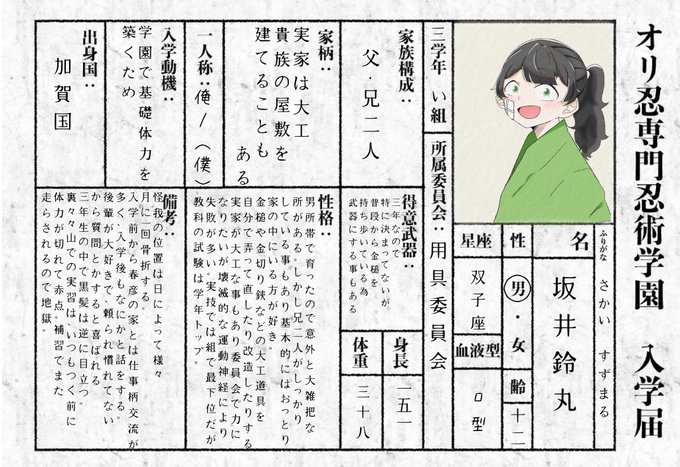 オリ忍専門忍術学園　入学届
ふりがな　さかい　すずまる
名　坂井鈴丸
性　男・女　齢　十二
星座　双子座　血液型　O型
三学年　い組　所属委員会：用具委員会
得意武器：
三年なので
特に決まってないが
普段から金槌を
持ち歩いている為
武器にする事もある
身長　一五一
体重　三十八
家族構成：
父・兄二人
家柄：
実家は大工
貴族の屋敷を
建てることも
ある
一人称：俺/（僕）
入学動機：
学園で基礎体力を
築くため
出身国：
加賀国
性格：
男所帯で育ったので意外と大雑把な
所がある。しかし兄二人がしっかり
している事もあり基本的にはおっとり
家の中にいる方が好き。
金槌や金切り鋏などの大工道具を
自分で弄って直したり改造したりする
実家が大工な事もあり委員会で力に
なりたいが壊滅的な運動神経により
失敗が多い。実技では組で最下位だが
教科の試験は学年トップ
備考：
怪我の位置は日によって様々
月に一回骨折する。
入学前から春彦の家とは仕事柄交流が
多く、入学後もなにかと話をする。
後輩が大好きで、頼られ慣れてない
から質問とかすると喜ばれる
三年生の中で黒髪は逆に目立つ。
裏々々山での実習はいつもつく前に
体力が切れて赤点。補習でまた
走らされるので地獄。